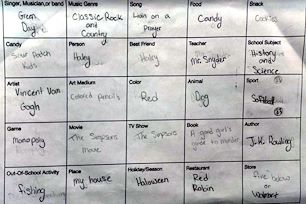 Singer, Musician, or band
Green
Day
Music Genre
Classic Rock
and
Country
Song
Livin on a
Prayer
Food
Candy
Snack
Cookies
Candy
Sour Patch
Kids
Person
Haley
Best Friend
Haley
Teacher
Mr. Snyder
School Subject
History
and
Science
Artist
Vincent Van
Gogh
Art Medium
Colored pencils
Color
Red
Animal
Dog
Sport
Softball
Game
Monopoly
Movie
The Simpsons
Movie
TV Show
The Simpsons
Book
A good girl's
guide to murder
Author
J.K. Rowling
Out-Of-School Activity
fishing
Place
my house
Holiday/Season
Halloween
Restaurant
Red
Robin
Store
five below
or
Walmart